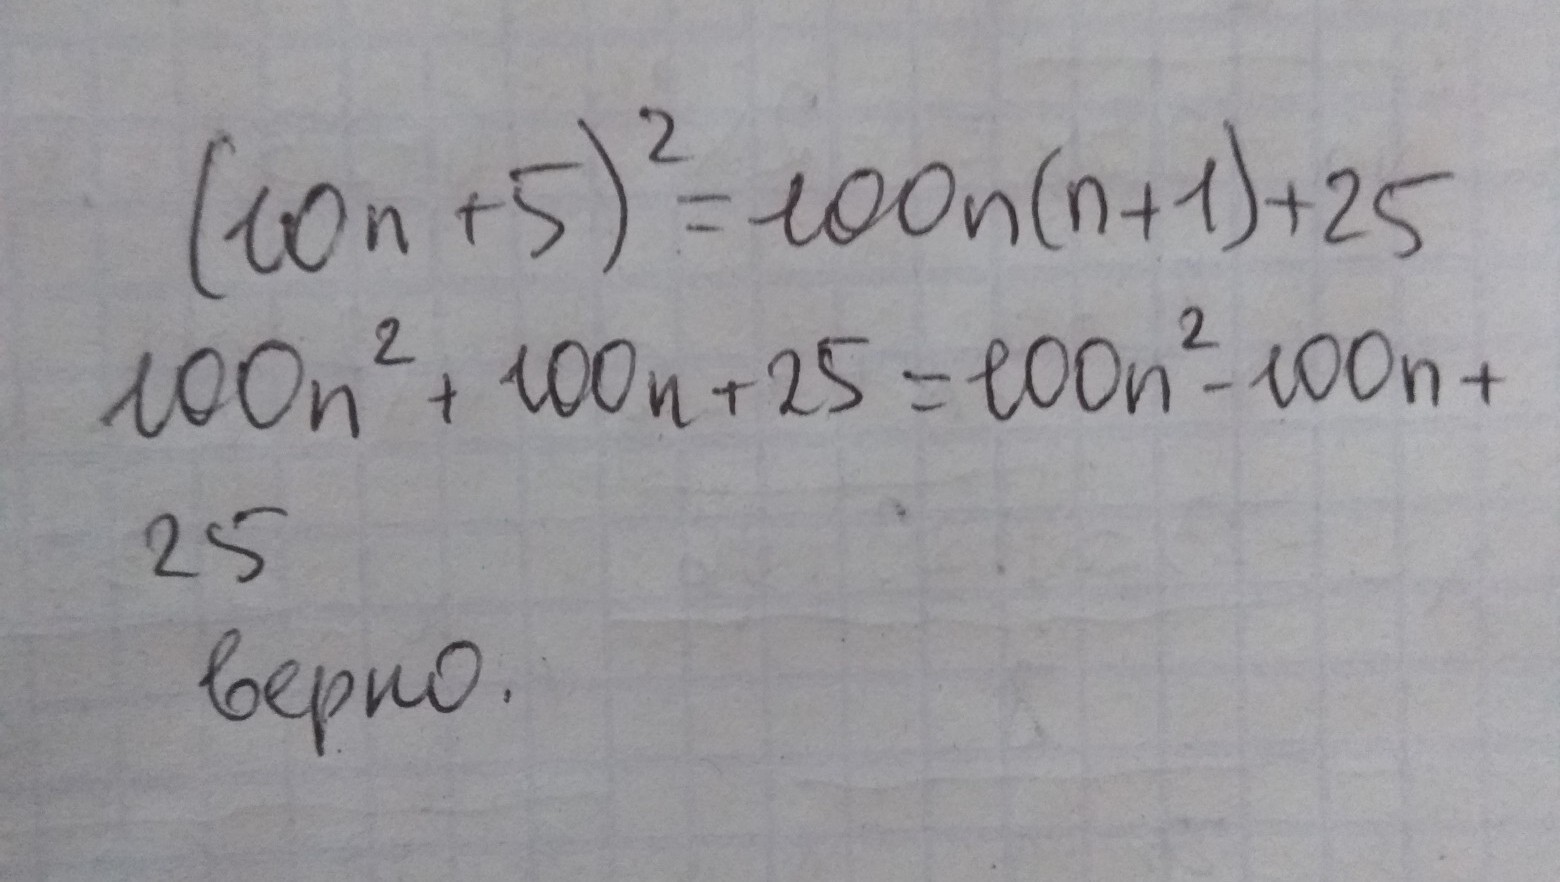 (10n+5)²=100n(n+1)+25
100n²+100n+25=100n²-100n+
25
верно.